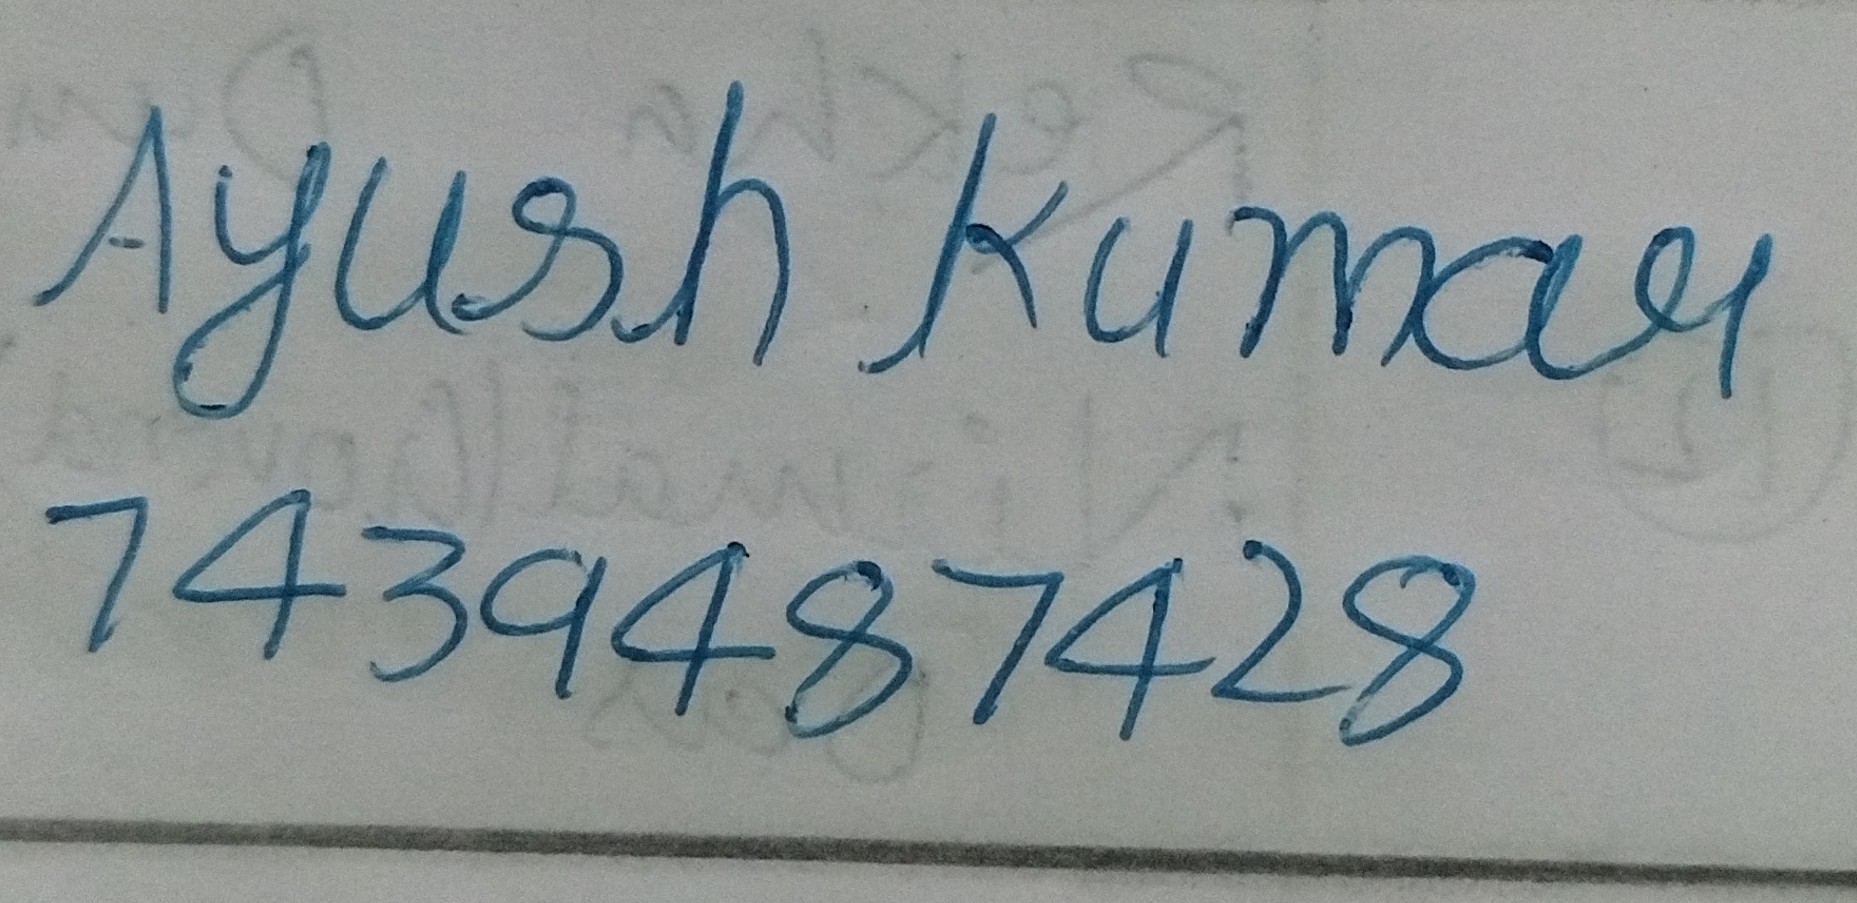 Ayush Kumar
7439487428